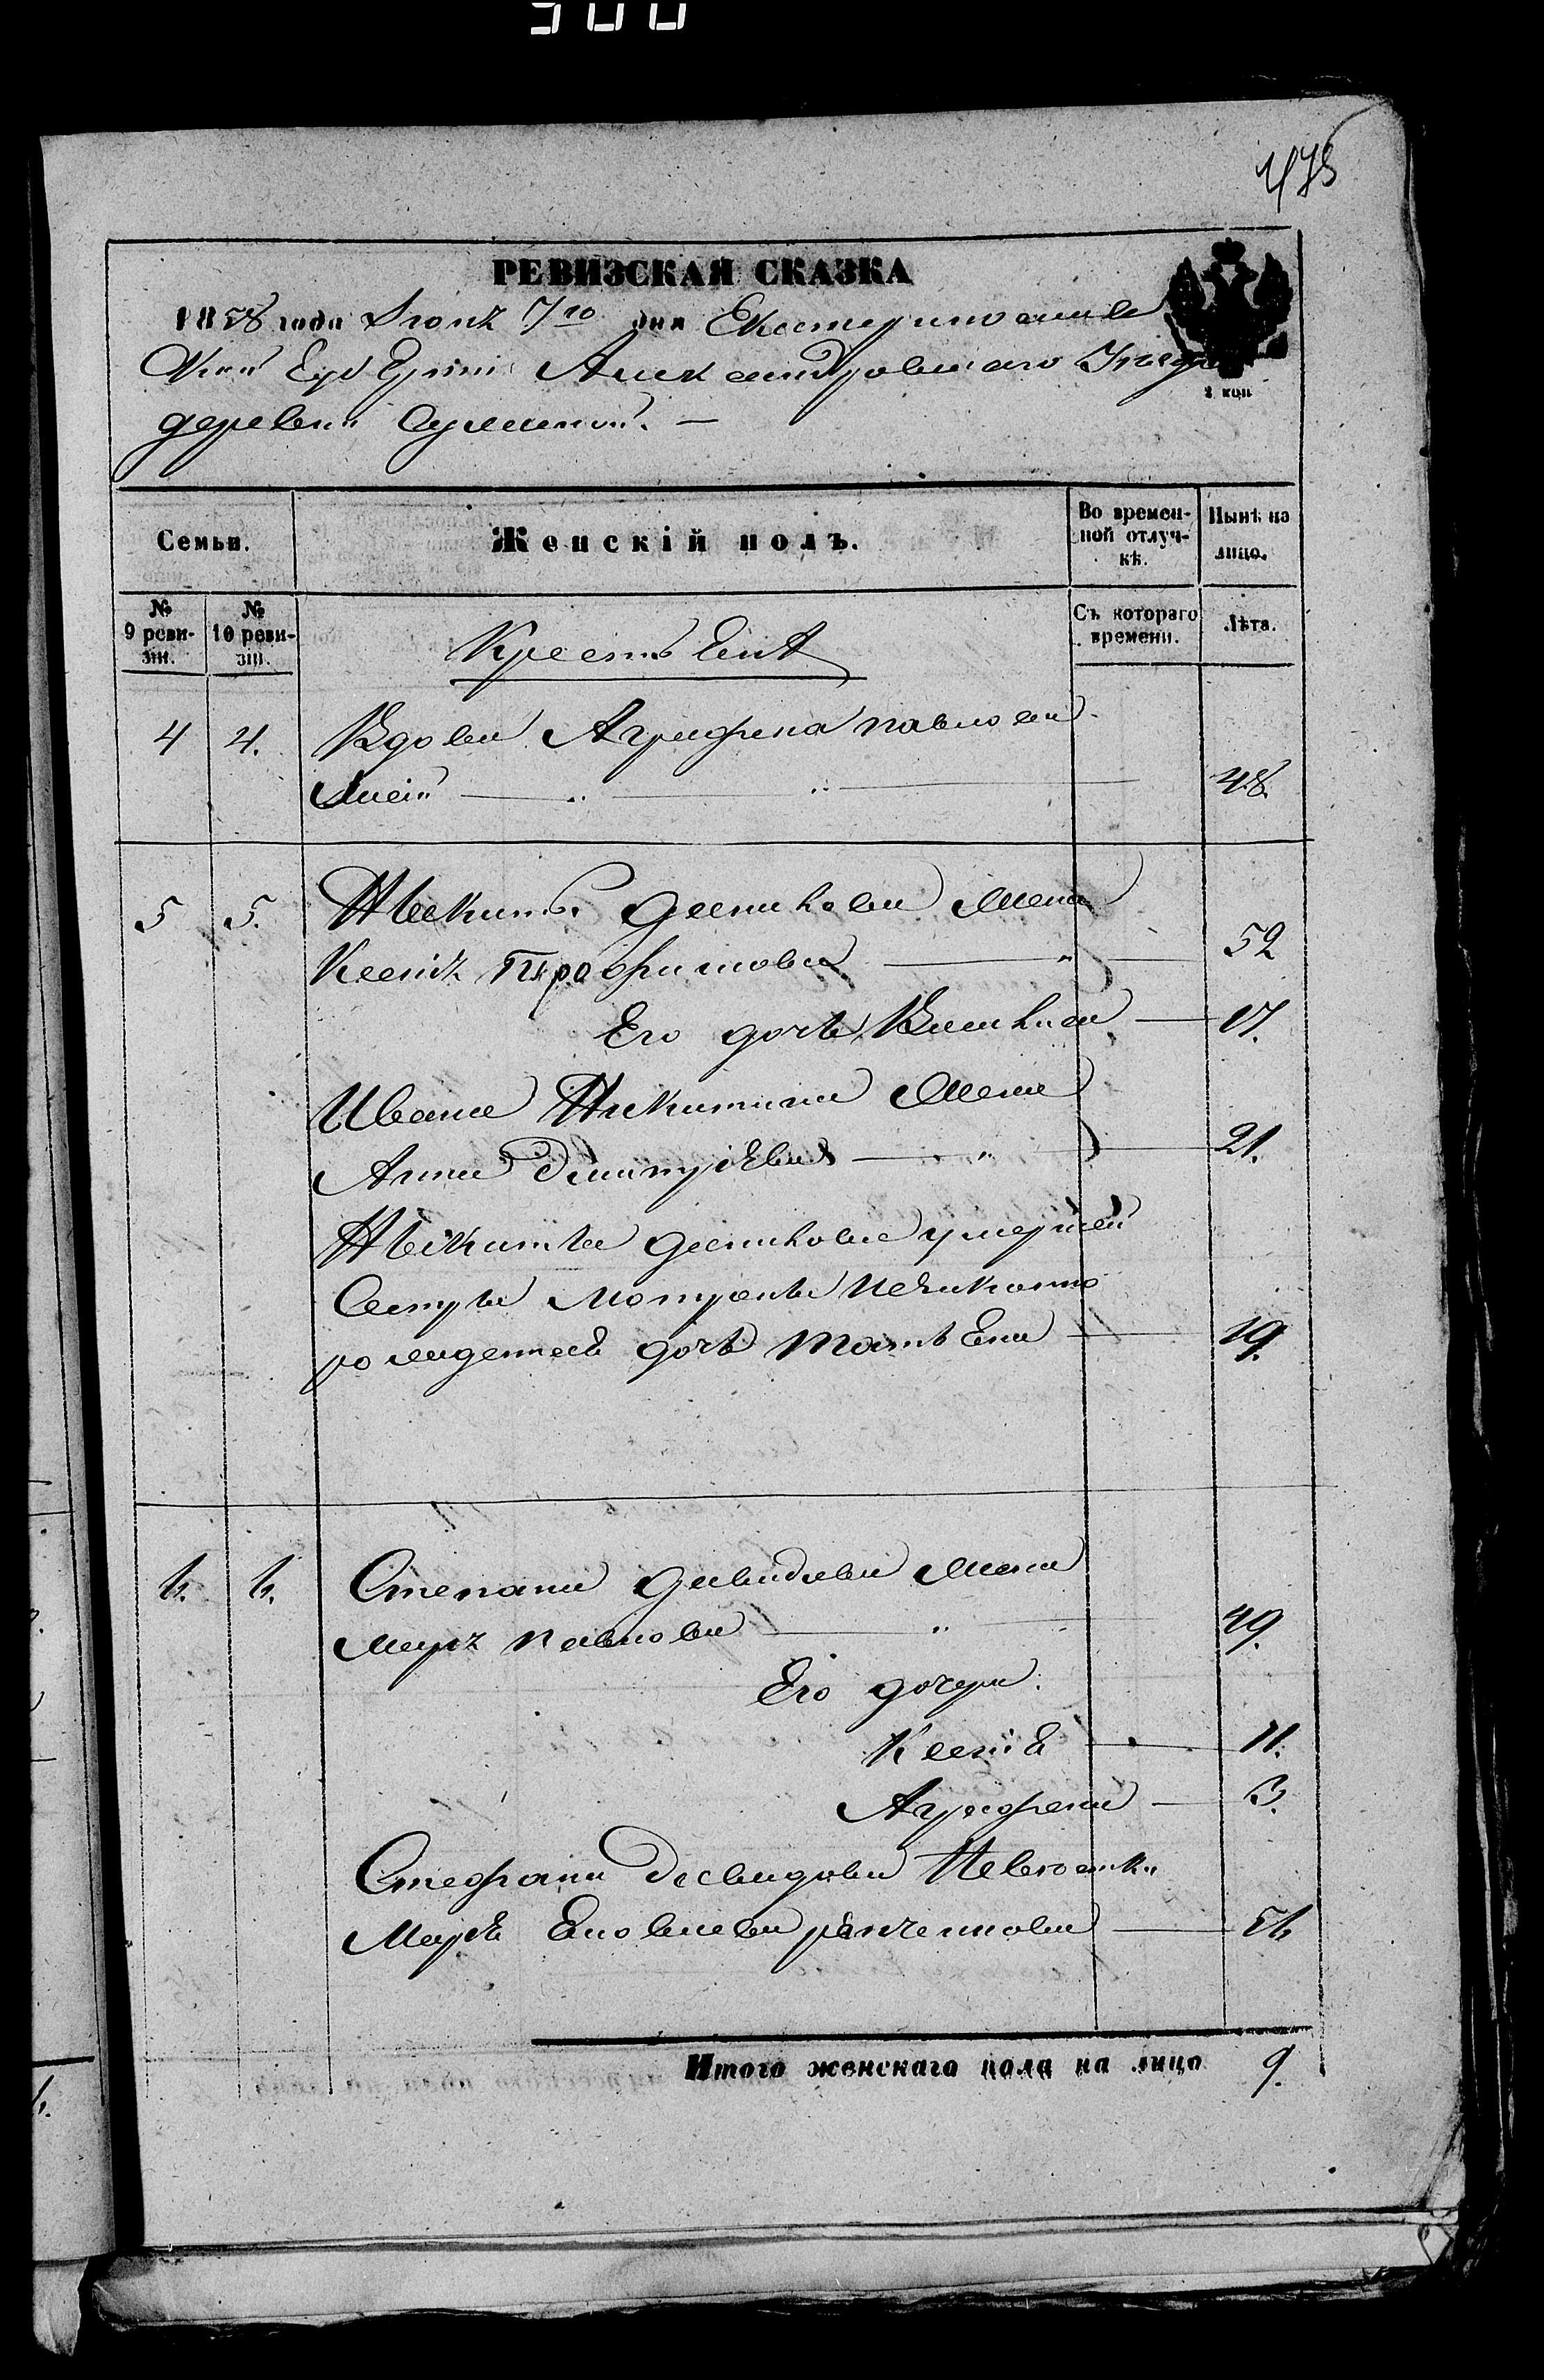 500
475
РЕВИЗСКАЯ СКАЗКА
1858 года Июня 7го дня Екатеринославс
кой Губерніи Александровскаго Уезда
деревни
2 коп
Семьи.
Женскій полъ.
Во времен-
ной отлуч-
кѣ.
Нынѣ на
лицо.
№
9 реви-
зіи.
№
10 реви-
зіи.
Съ котораго
времени.
Лѣта.
Крестьяня
4 4. Вдова Агрифина павлова
48.
5 5. Никиты Данилова жена
Ксенія Трофимова 52
Его дочь Василиса 17.
Ивана Никитина жена
Анна Дмитріева 21.
Никиты Данилова умершей
Сестры Мотроны незаконно
рожденная дочь Татьяна 19.
6. 6. Степана Давидова жена
Марія Павлова 49.
Его дочери:
Ксенія 11.
Агрефена 3.
Стефана Давидова Невестка
Марія 26
Итого женскаго пола на лицо 9.